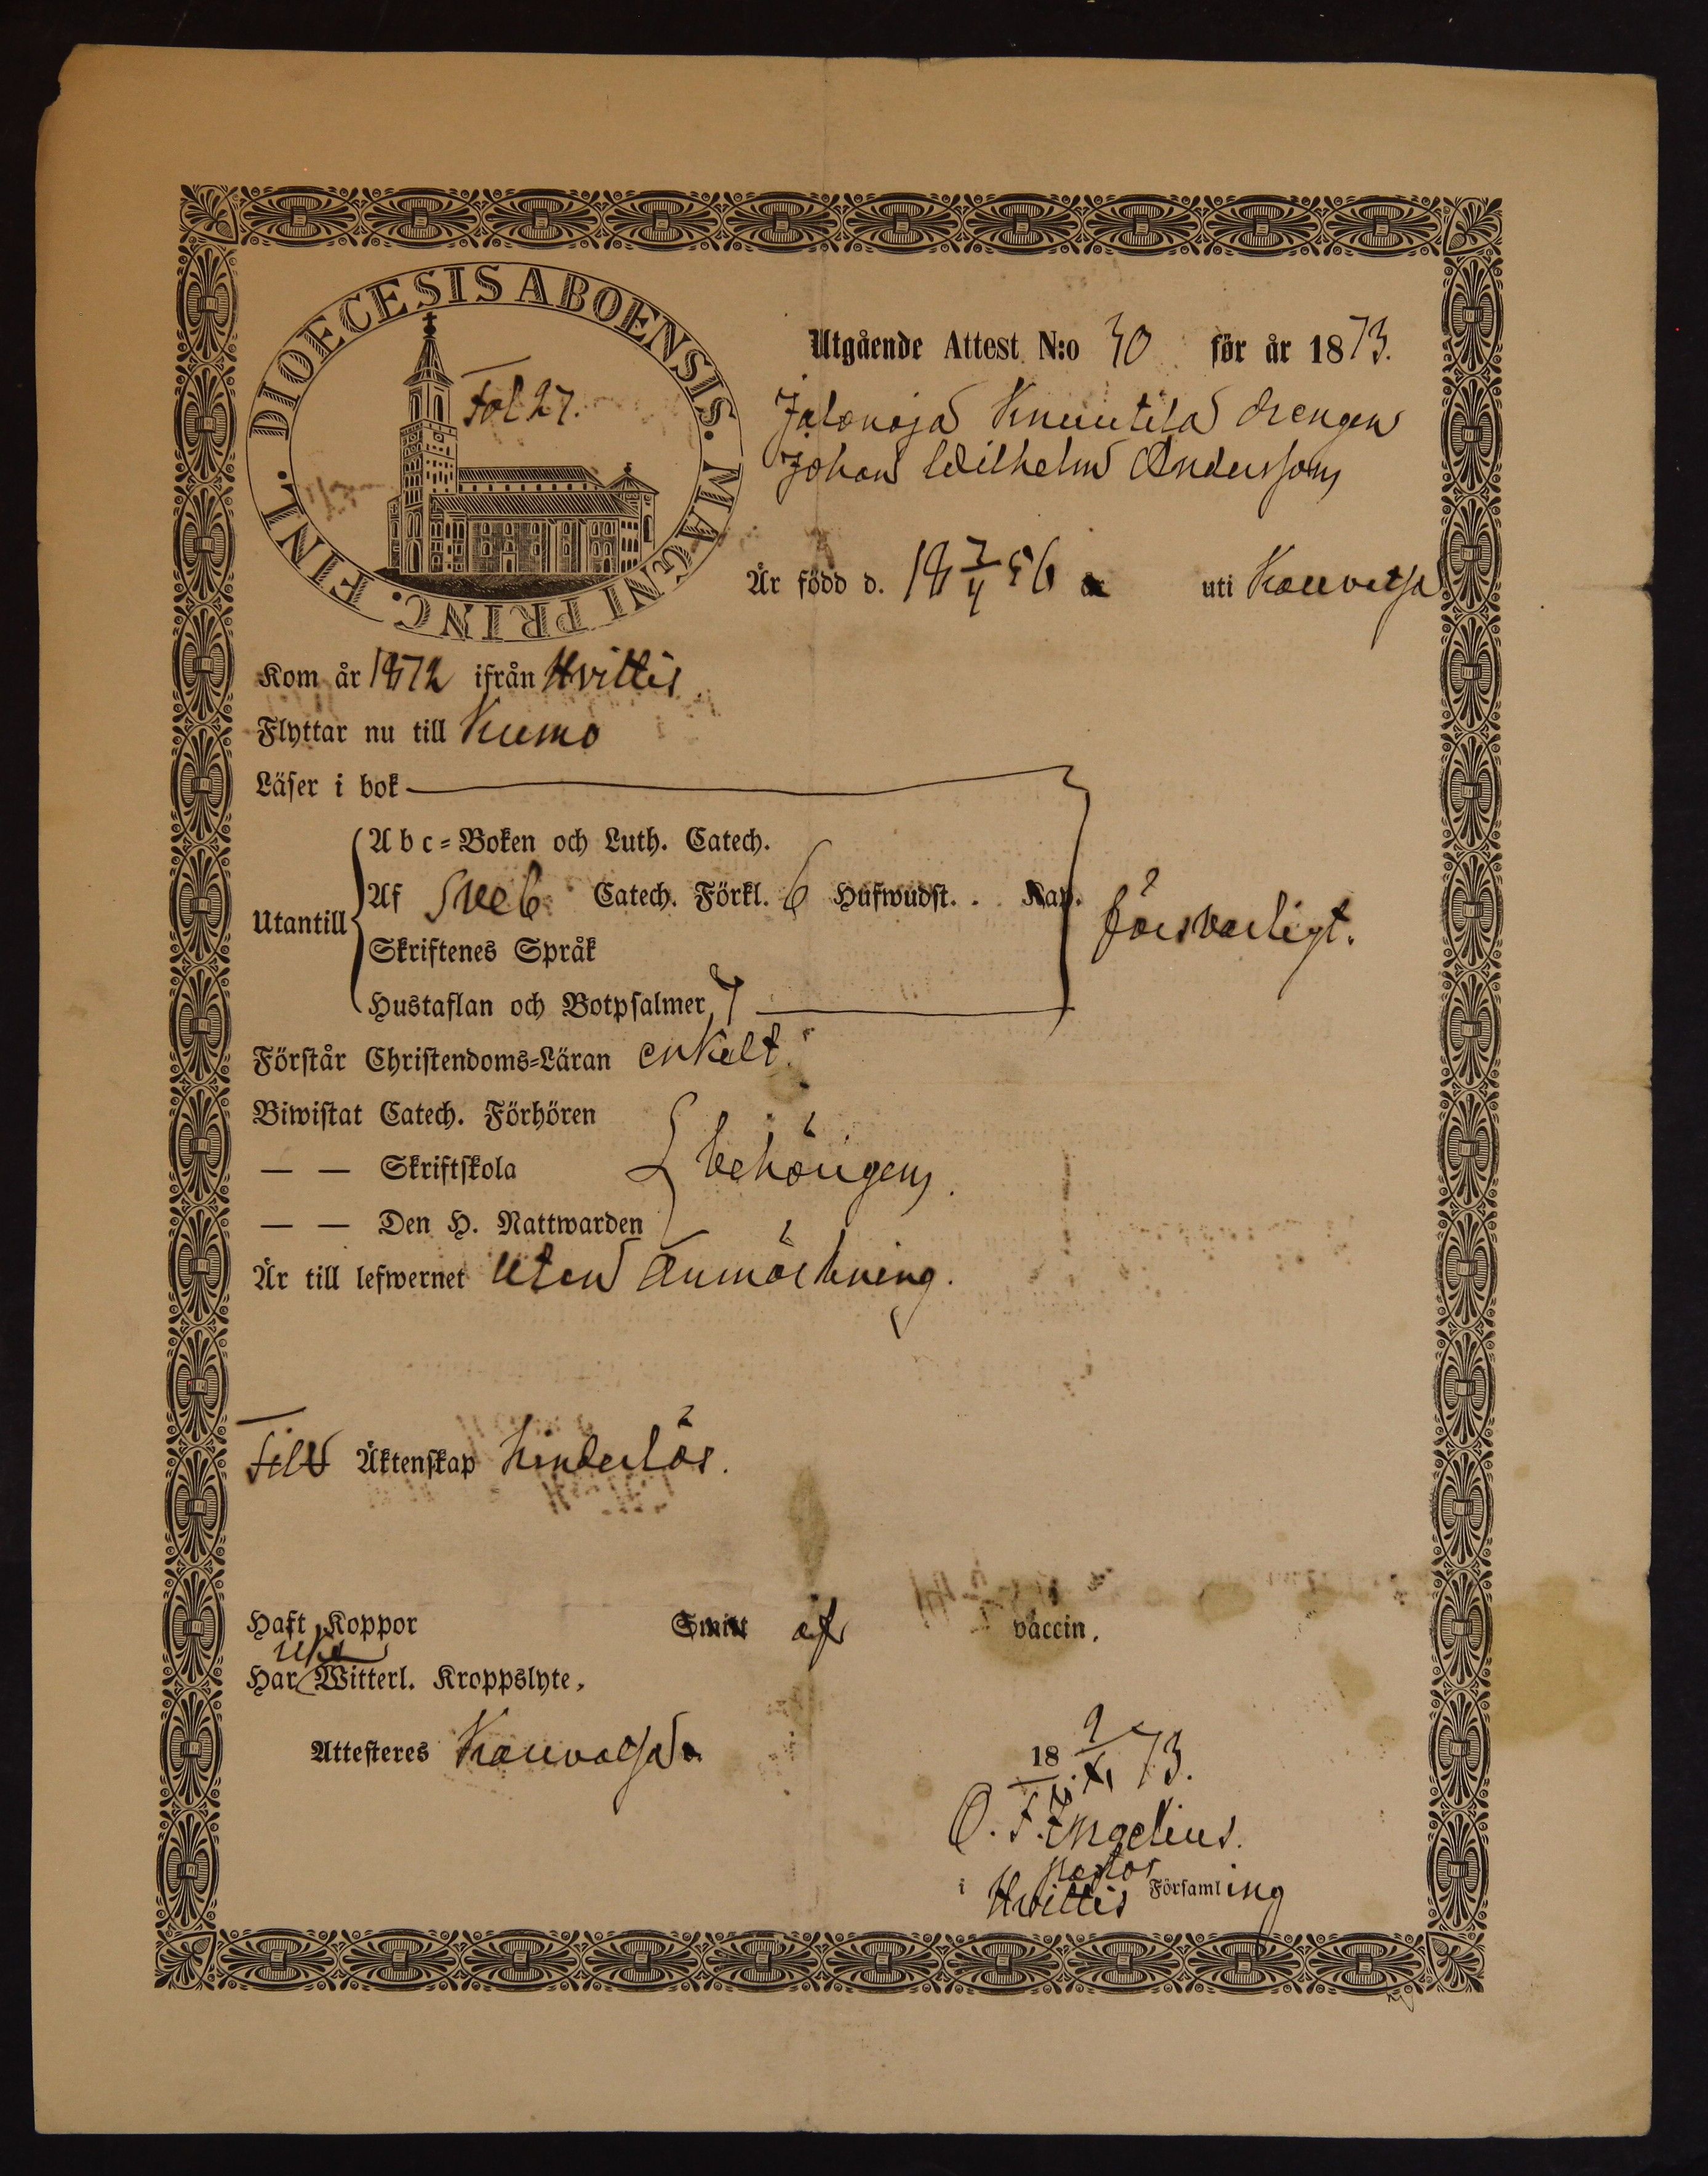 DIOECESIS ABOENSIS. MAGNI PRINC. FINL.
Fol 27.
Utgående Attest N:o 30 för år 1873.
Jalonoja Knuutila drengen
Johan Wilhelm Andersson
Är född d. 18 7/4 56 uti Kauvatsa
Kom år 1872 ifrån Hvittis
Flyttar nu till Kumo
Läser i bok
Utantill
Abc-Boken och Luth. Catech.
Af Sveb Catech. Förkl. 6 Hufwudst. . Kap.
försvarligt.
Skriftenes Språk
Hustaflan och Botpsalmer 7
Förstår Christendoms-Läran enkelt.
Biwistat Catech. Förhören
— — Skriftskola
behörigen.
— — Den H. Nattwarden
Är till lefwernet utan Anmärkning.
Till Äktenskap hinderlös.
Haft Koppor Smitt af vaccin.
Har Witterl. Kroppslyte.
Attesteres Kauvatsa 18 9/XI 73.
O. F. Ingelius.
pastor
i Hvittis Församling